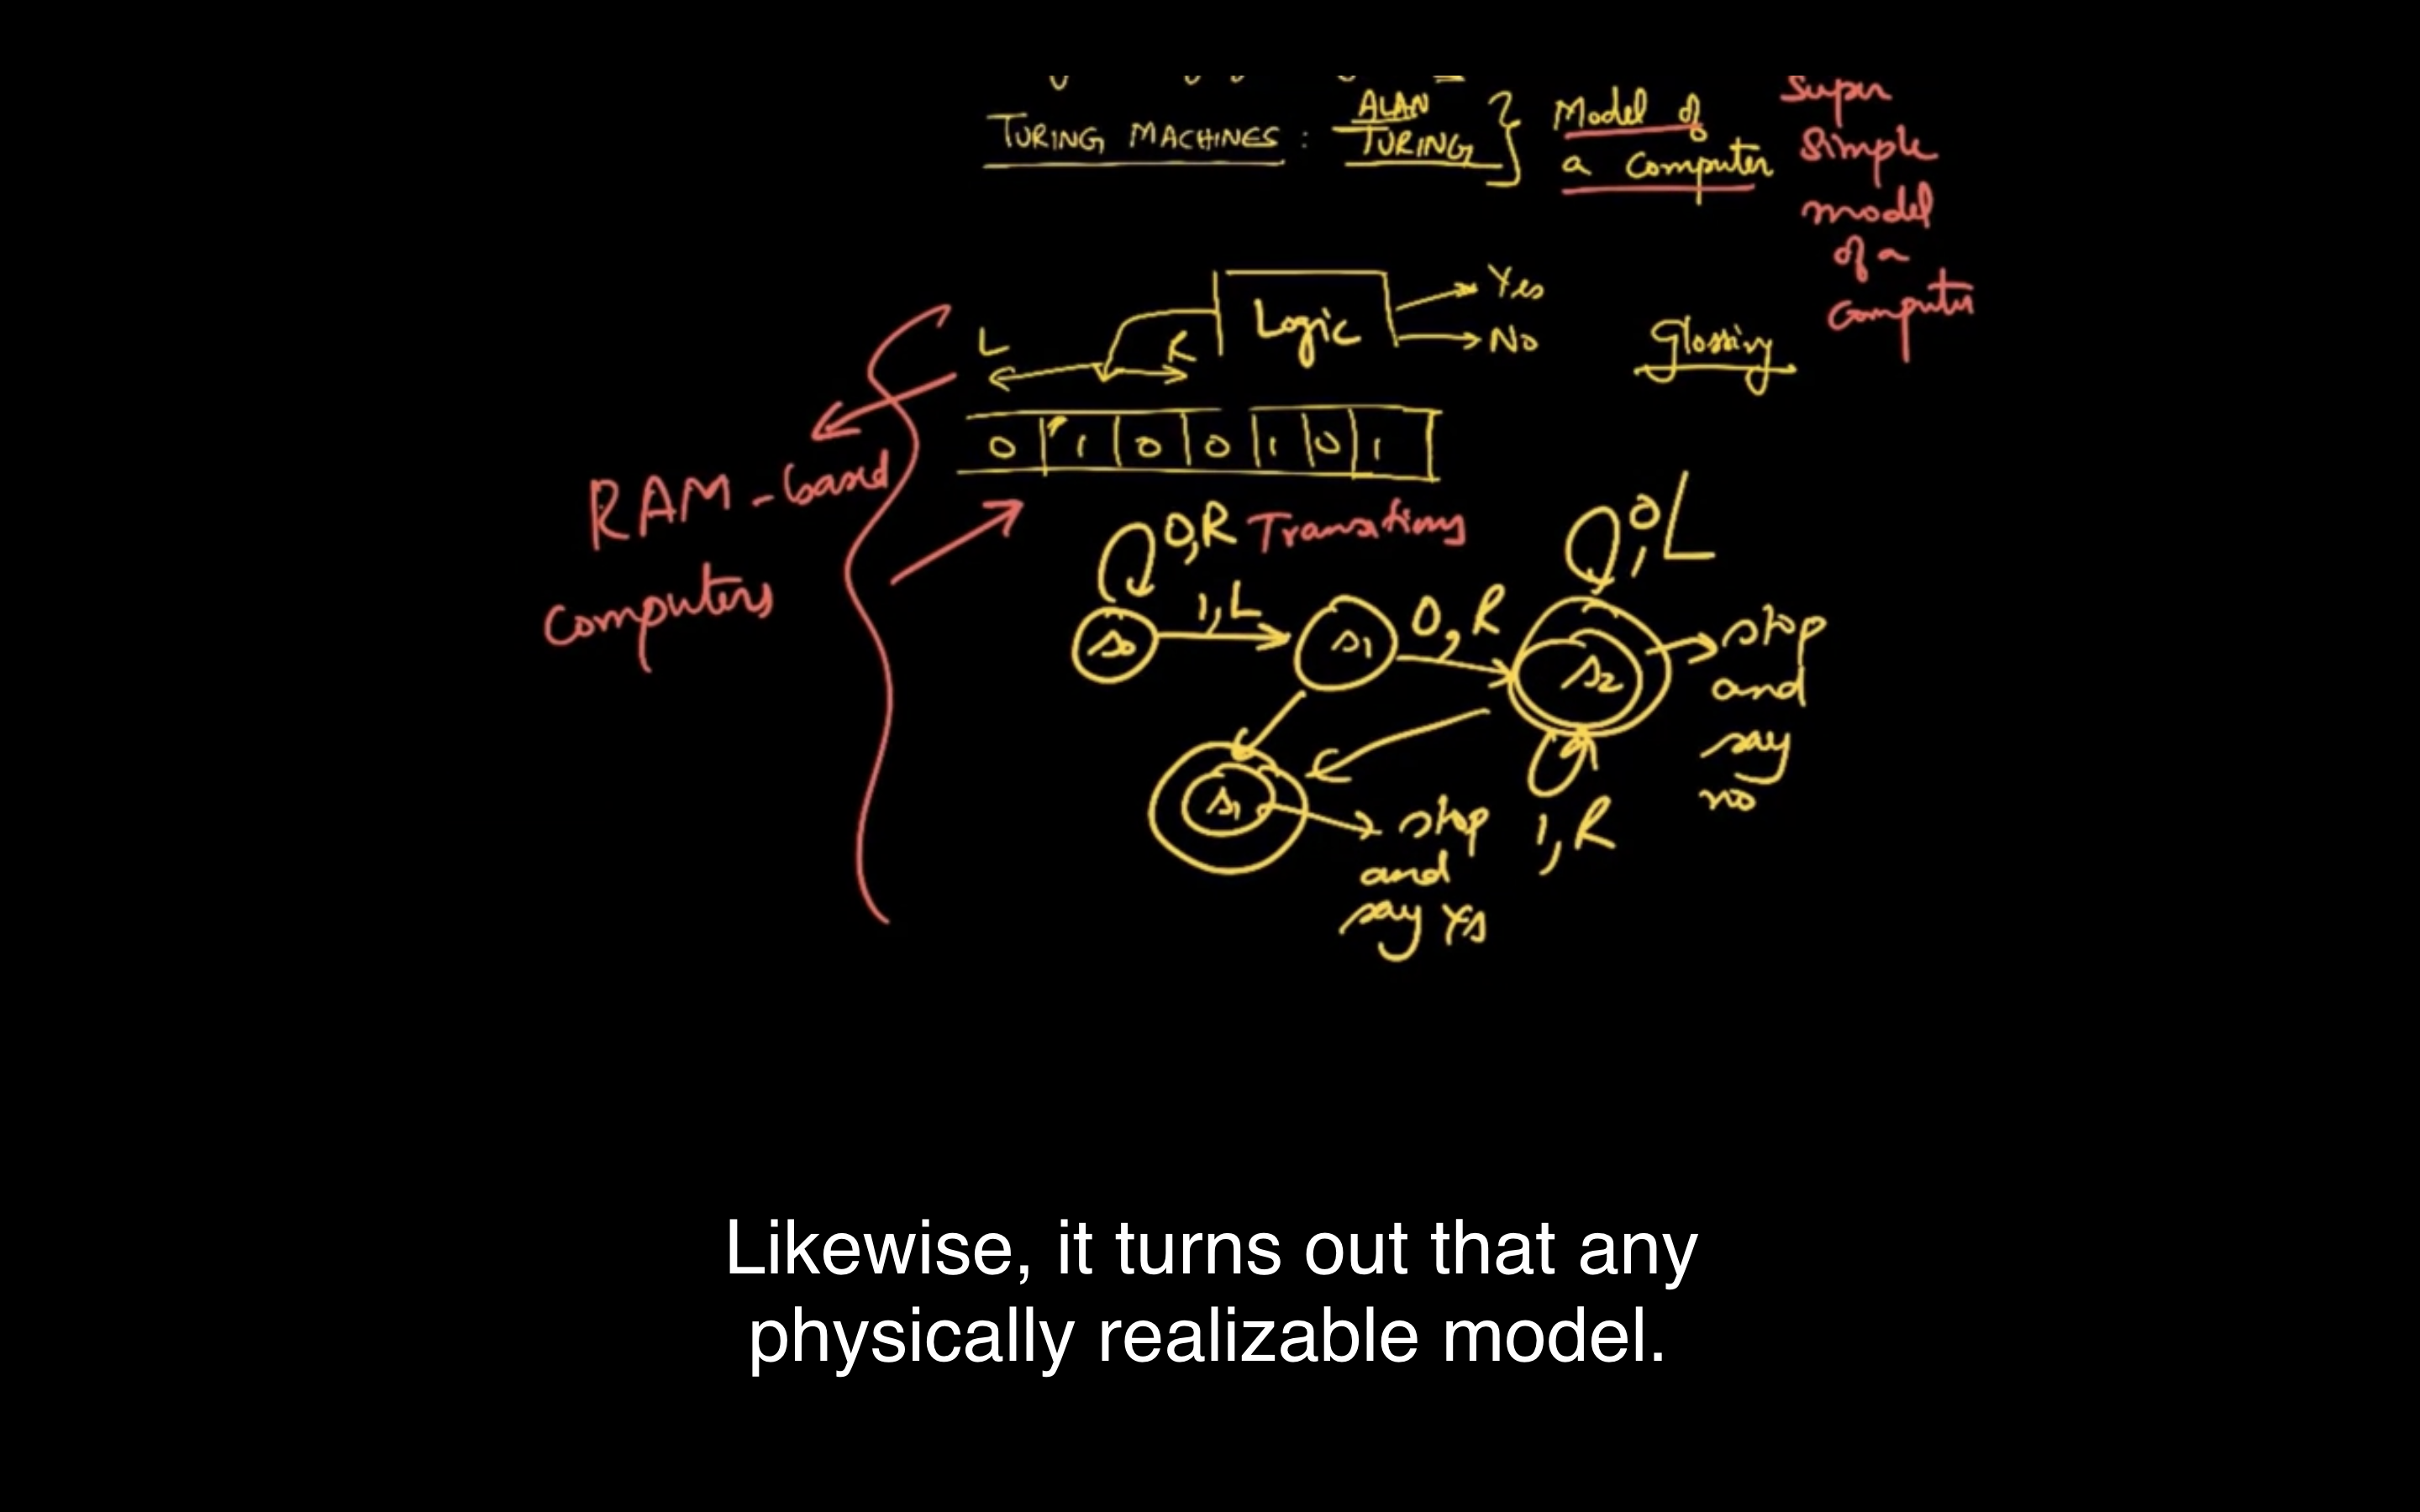 TURING MACHINES : ALAN TURING } Model of a Computer
Super
Simple
model
of a
Computer
Logic
Yes
No
L
R
Glossing
0 1 0 0 1 0 1
RAM-based
Computers
0,R Transitions
0,L
1,L
0,R
s0
s1
s2
stop
and
say
no
s1
stop
and
say Yes
1,R
Likewise, it turns out that any
physically realizable model.